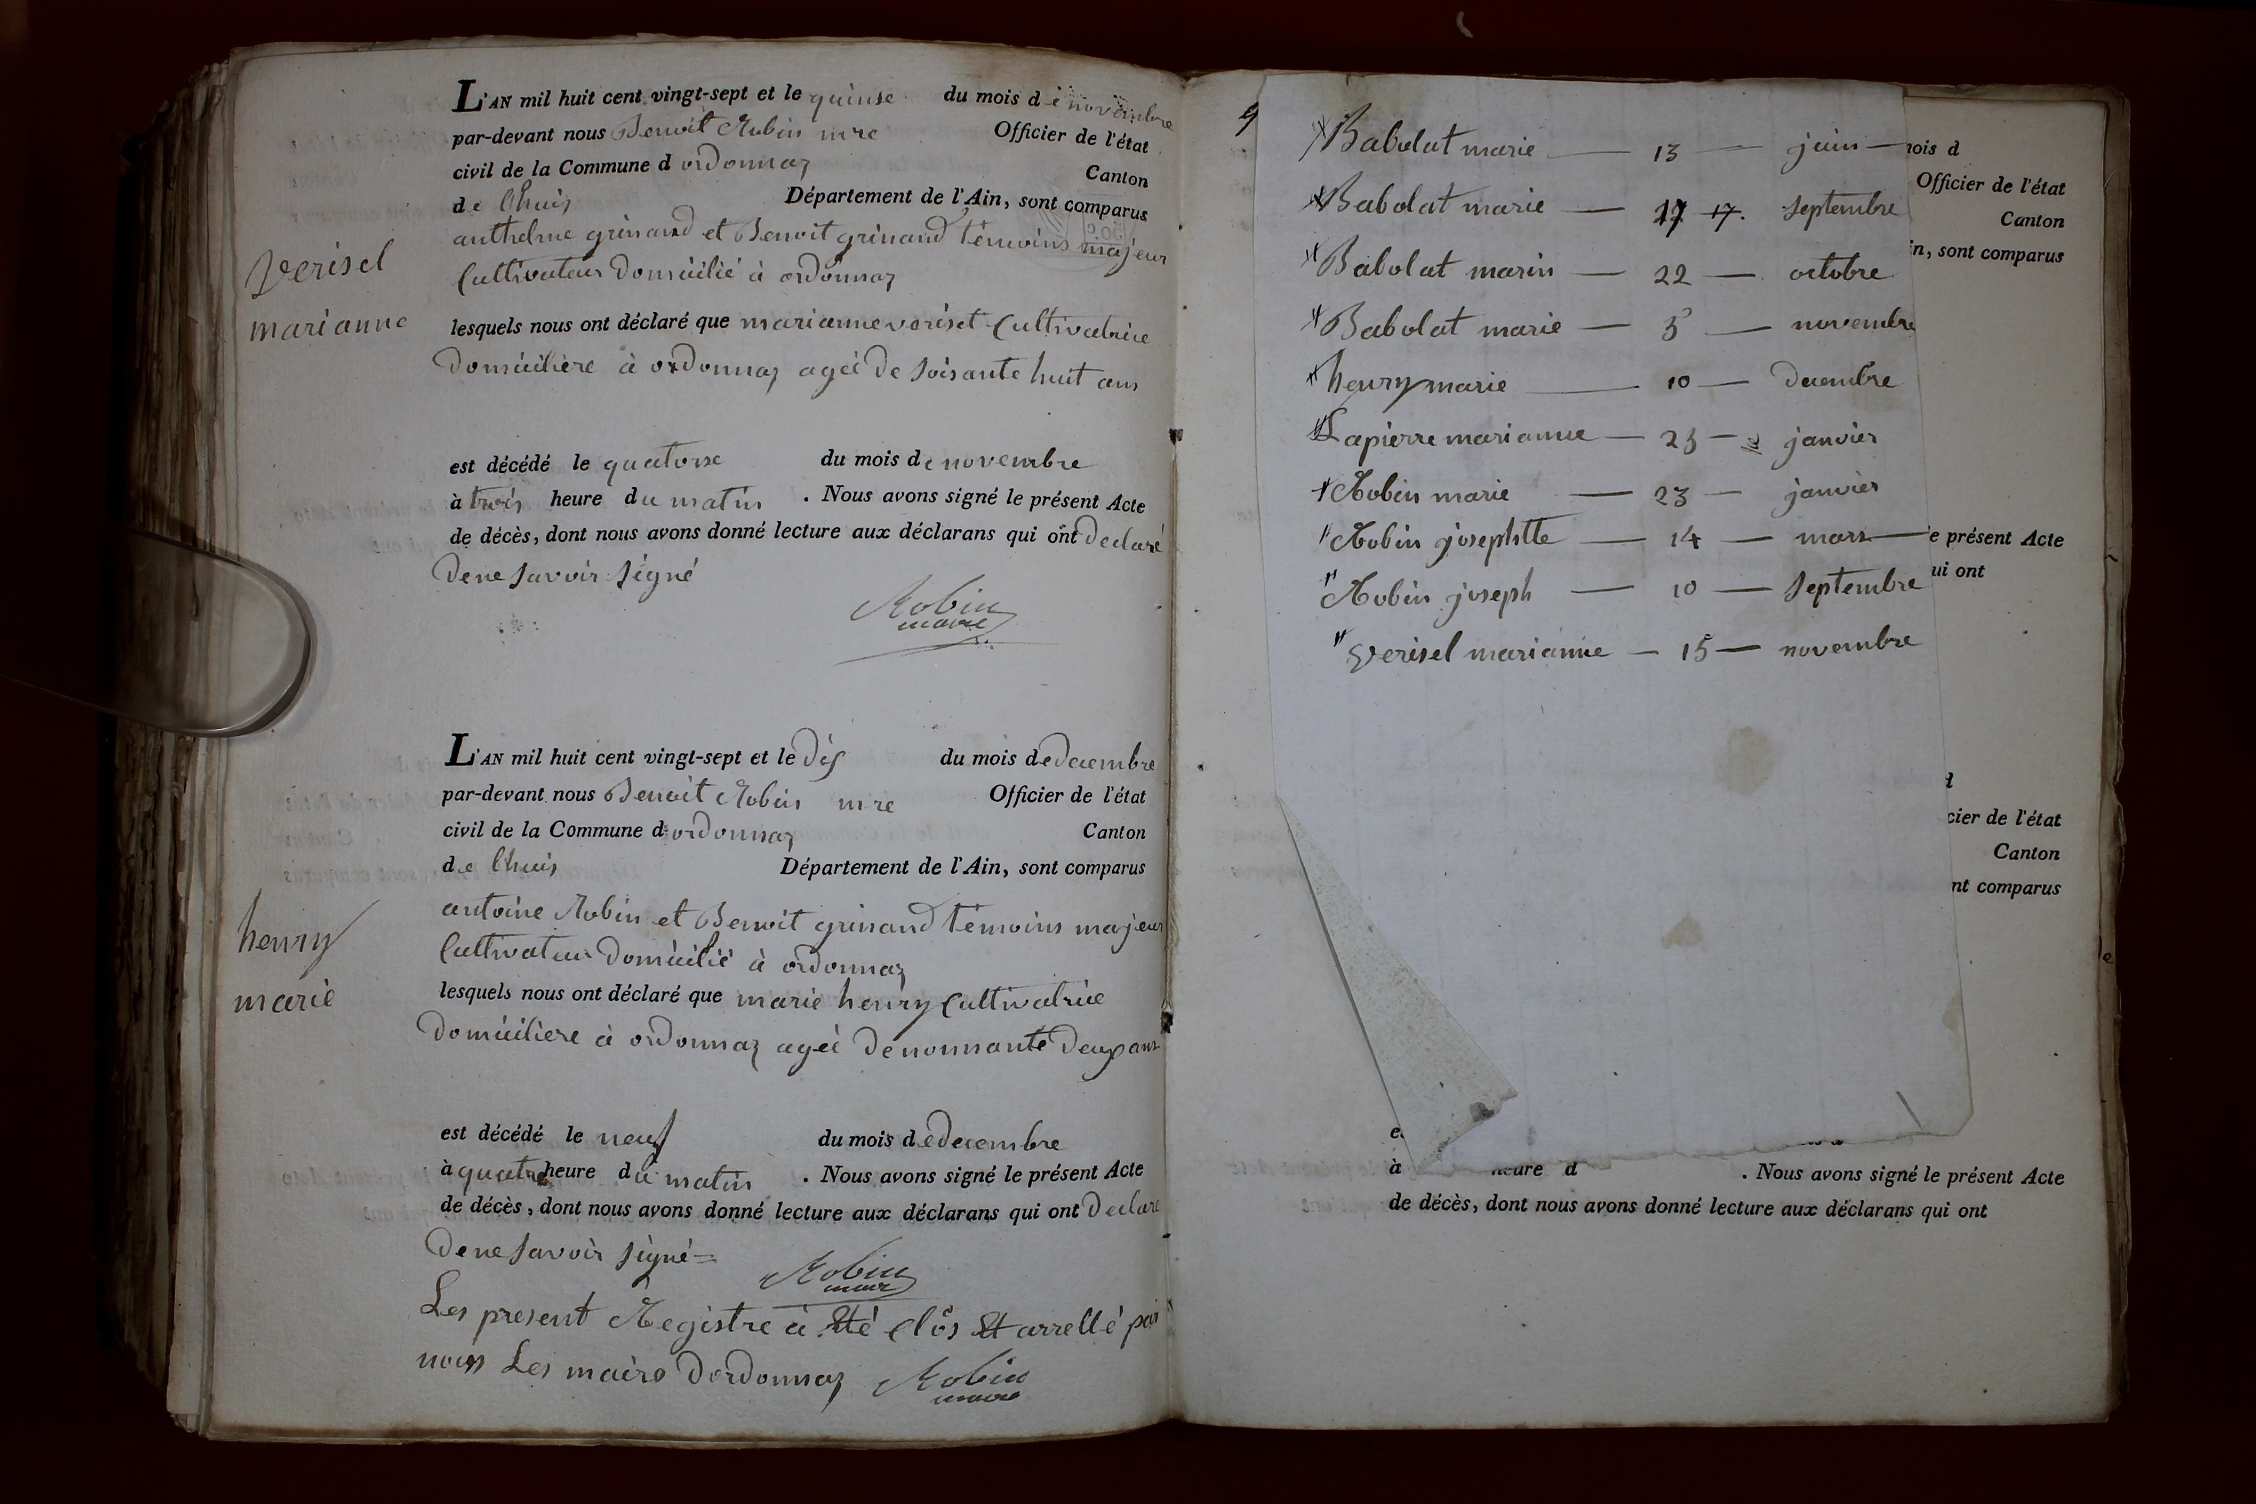 L'AN mil huit cent vingt-sept et le quinse du mois de novembre
par-devant nous Benoit Robin mre Officier de l'état
civil de la Commune d ordonnaz
Canton
de lhuis Département de l'Ain, sont comparus
anthelme grinand et Benoit grinand témoins majeur
Cultivateur domicilié à ordonnaz
verisel
marianne
lesquels nous ont déclaré que marianne verisel Cultivatrice
domicilière à ordonnaz agéé de soisante huit ans
est décédé le quatorse du mois de novembre
à trois heure du matin . Nous avons signé le présent Acte
de décès, dont nous avons donné lecture aux déclarans qui ont declaré
de ne savoir signé
Robin
maire
L'AN mil huit cent vingt-sept et le dis du mois de decembre
par-devant nous Benoit Robin mre Officier de l'état
civil de la Commune d ordonnaz Canton
de lhuis Département de l'Ain, sont comparus
antoine Robin et Benoit grinand témoins majeur
Cultivateur domicilié à ordonnaz
henry
marie
lesquels nous ont déclaré que marie henry Cultivatrice
domicilière à ordonnaz agéé de nonnante deux ans
est décédé le neuf du mois de decembre
à quatre heure du matin . Nous avons signé le présent Acte
de décès, dont nous avons donné lecture aux déclarans qui ont declaré
de ne savoir signé =
Robin
maire
Les present Registre à été clôs et arretté par
nous Les maire d'ordonnaz Robin
maire
9
Babolat marie — 13 — juin
Babolat marie — 17 17. septembre
Babolat marin — 22 — octobre
Babolat marie — 5 — novembre
henry marie — 10 — decembre
Lapierre marianne — 23 — janvier
Robin marie — 23 — janvier
Robin josephtte — 14 — mars
Robin joseph — 10 — septembre
verisel marianne — 15 — novembre
nois d
Officier de l'état
Canton
in, sont comparus
e présent Acte
ui ont
d
cier de l'état
Canton
nt comparus
e
à heure d . Nous avons signé le présent Acte
de décès, dont nous avons donné lecture aux déclarans qui ont